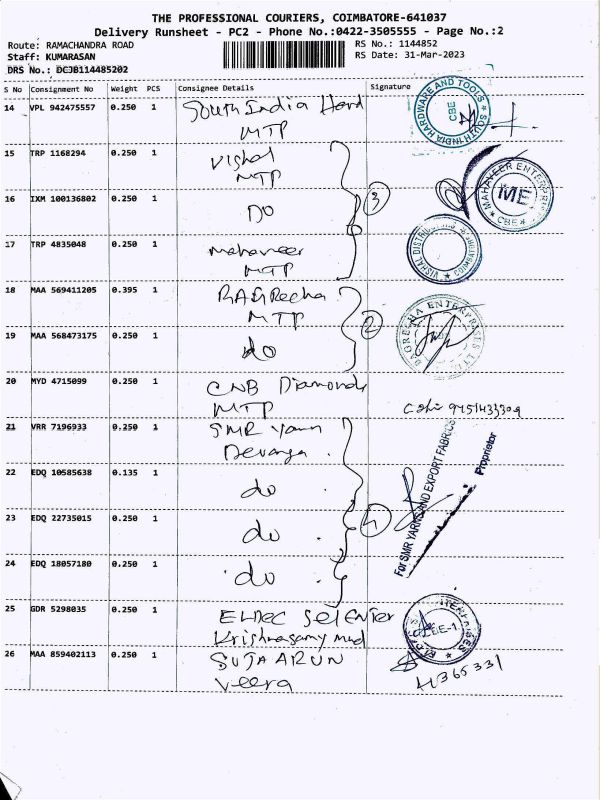 THE PROFESSIONAL COURIERS, COIMBATORE-641037
Delivery Runsheet - PC2 - Phone No.:0422-3505555 - Page No.:2
Route: RAMACHANDRA ROAD RS No.: 1144852
Staff: KUMARASAN RS Date: 31-Mar-2023
DRS No.: DCJB114485202
S No Consignment No Weight PCS Consignee Details Signature
14 VPL 942475557 0.250 1 South India Hard
MTP
SOUTH INDIA HARDWARE AND TOOLS
CBE
15 TRP 1168294 0.250 1 Vishal
MTP
16 IXM 100136802 0.250 1 DO
3
MAHAVEER ENTERPRISES
ME
CBE
17 TRP 4835048 0.250 1 Mahaveer
MTP
VISHAL DISTRIBUTORS
COIMBATORE
18 MAA 569411205 0.395 1 BAGReecha
MTP
2
BAGREECHA ENTERPRISES LTD
19 MAA 568473175 0.250 1 do
20 MYD 4715099 0.250 1 CNB Diamonds
MTP
21 VRR 7196933 0.250 1 SMR Yarn
Devanga
22 EDQ 10585638 0.135 1 do
For SMR YARNS AND EXPORT FABRICS
Proprietor
23 EDQ 22735015 0.250 1 do
4
24 EDQ 18057180 0.250 1 do
25 GDR 5298035 0.250 1
Krishnasamy mud
26 MAA 859402113 0.250 1 SUJA ARUN
Veera